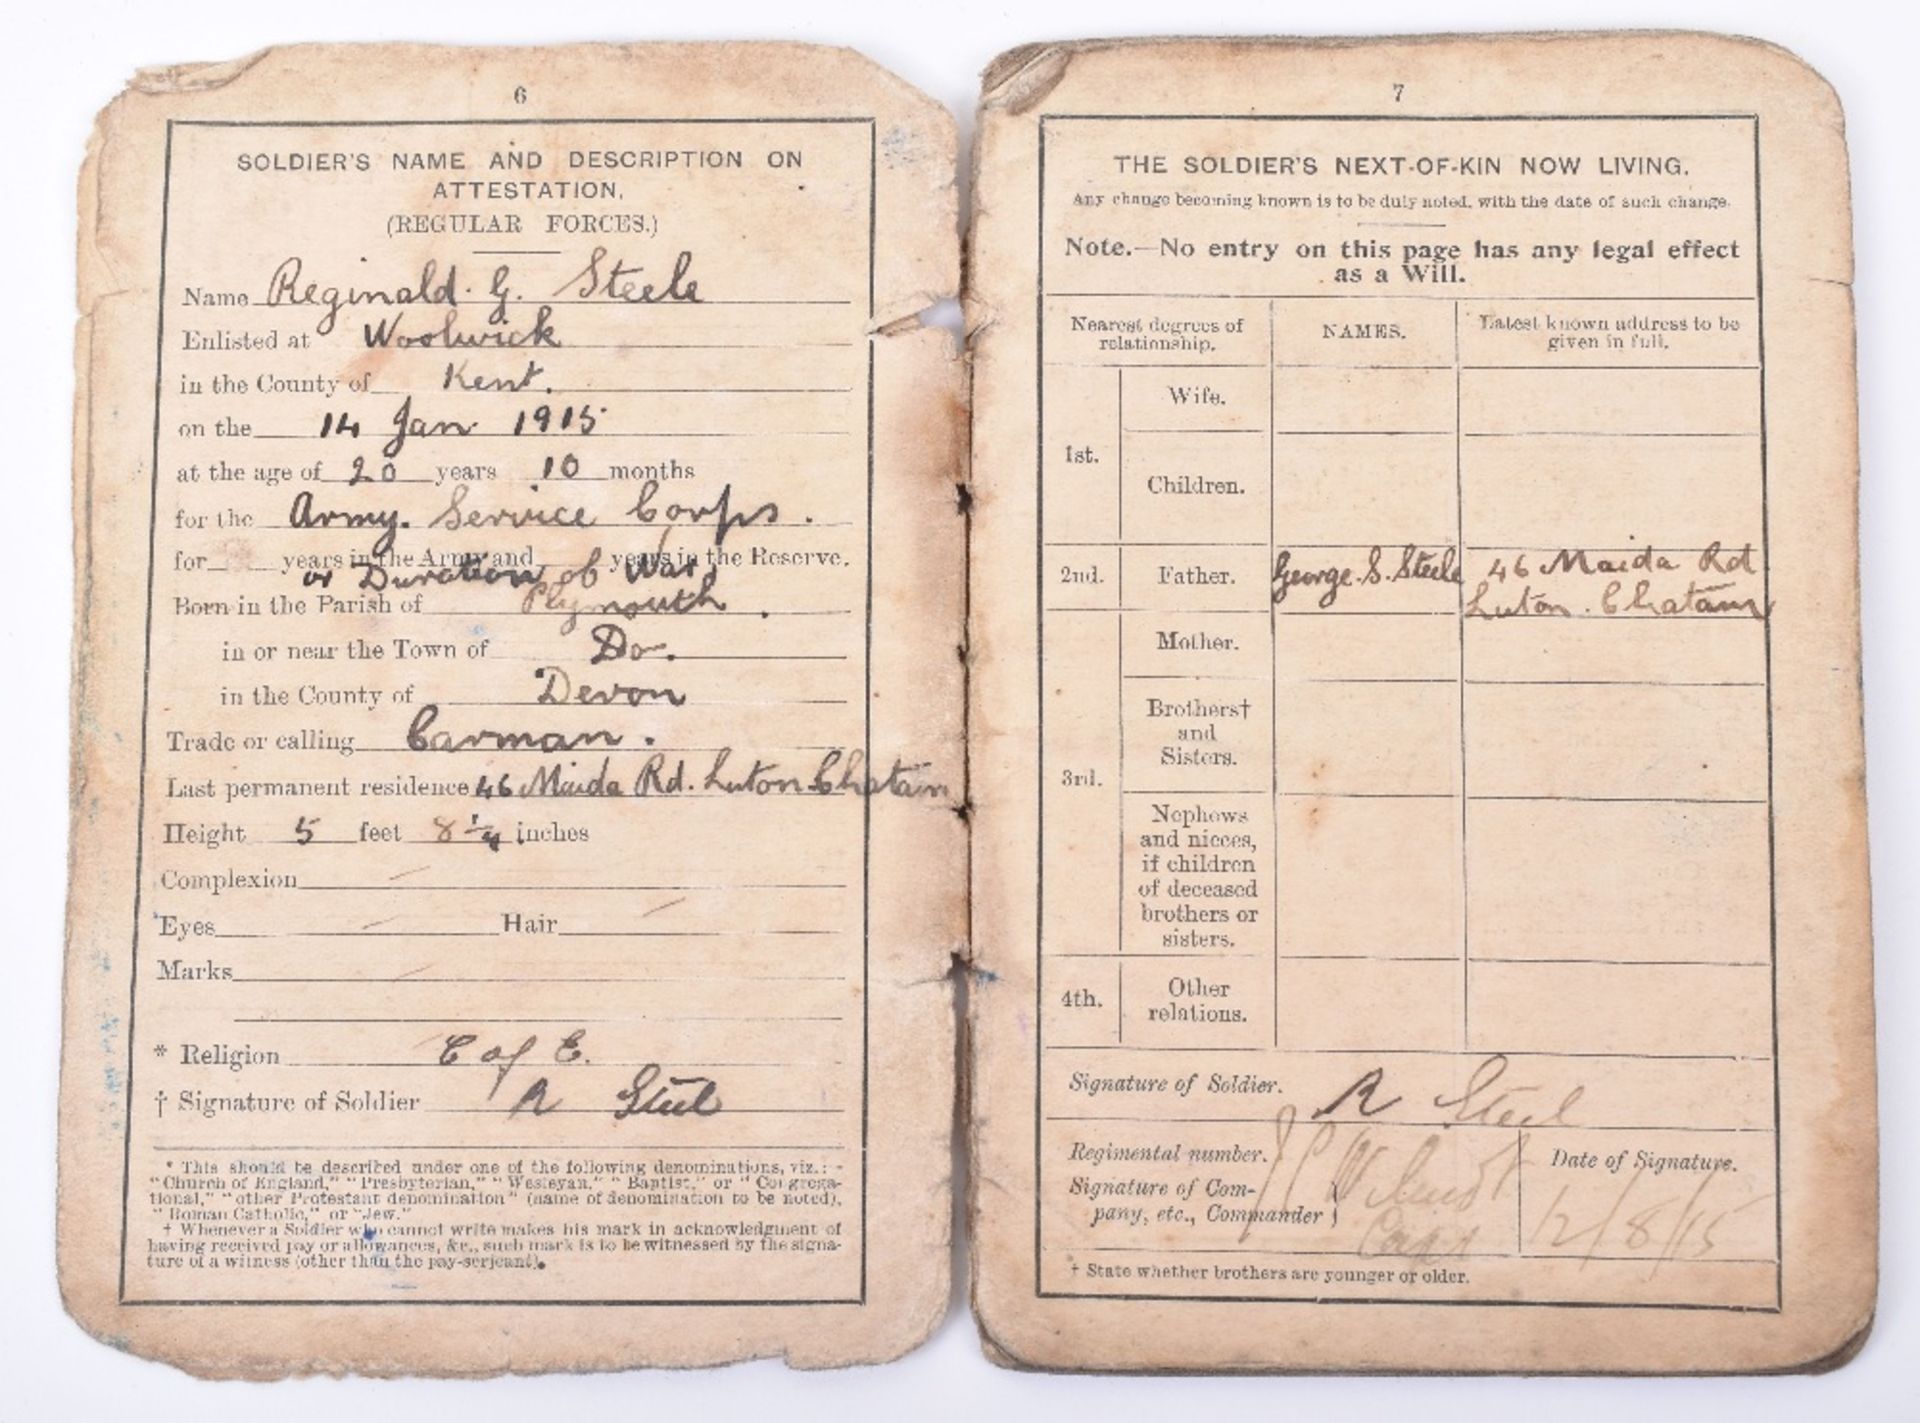 6
SOLDIER'S NAME AND DESCRIPTION ON
ATTESTATION.
(REGULAR FORCES.)
Name Reginald. G. Steele
Enlisted at Woolwick
in the County of Kent.
on the 14 Jan 1915
at the age of 20 years 10 months
for the Army. Service Corps.
for years in the Army and years in the Reserve.
or Duration of War
Born in the Parish of Plymouth.
in or near the Town of Do.
in the County of Devon
Trade or calling Carman.
Last permanent residence 46 Maida Rd. Luton. Chatam
Height 5 feet 8 1/4 inches
Complexion
Eyes Hair
Marks
* Religion C of E.
† Signature of Soldier R Steel
* This should be described under one of the following denominations, viz.: -
"Church of England," "Presbyterian," "Wesleyan," "Baptist," or "Congrega-
tional," "other Protestant denomination" (name of denomination to be noted),
"Roman Catholic," or "Jew."
† Whenever a Soldier who cannot write makes his mark in acknowledgment of
having received pay or allowances, &c., such mark is to be witnessed by the signa-
ture of a witness (other than the pay-serjeant).
7
THE SOLDIER'S NEXT-OF-KIN NOW LIVING.
Any change becoming known is to be duly noted, with the date of such change.
Note.—No entry on this page has any legal effect
as a Will.
Nearest degrees of
relationship.
NAMES.
Latest known address to be
given in full.
1st.
Wife.
Children.
2nd.
Father.
George. S. Steele
46 Maida Rd
Luton. Chatam
3rd.
Mother.
Brothers†
and
Sisters.
Nephews
and nieces,
if children
of deceased
brothers or
sisters.
4th.
Other
relations.
Signature of Soldier. R Steel
Regimental number.
Signature of Com-
pany, etc., Commander
Date of Signature.
12/8/15
† State whether brothers are younger or older.